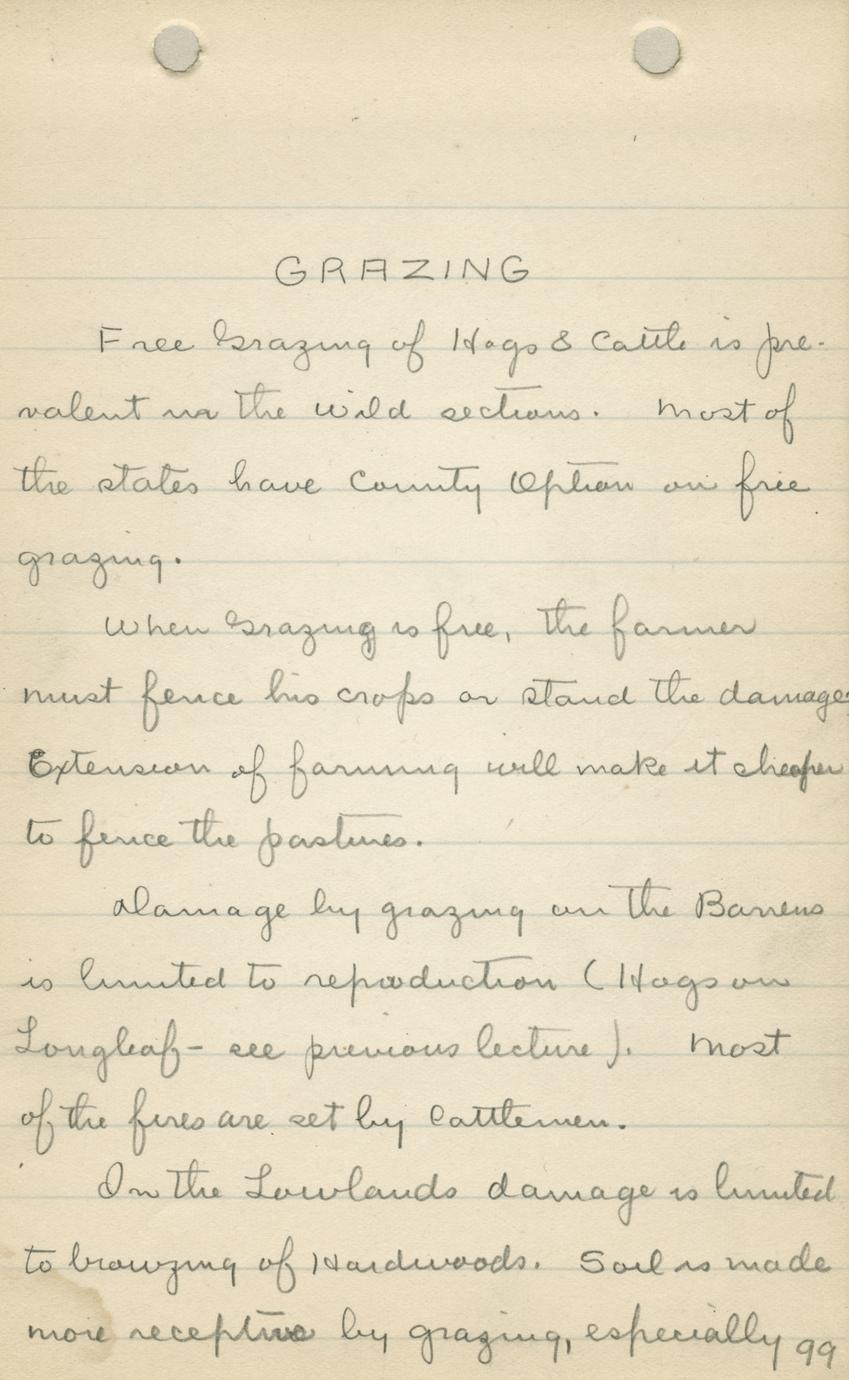 GRAZING
Free Grazing of Hogs & Cattle is pre-
valent in the wild sections. Most of
the states have County Option on free
grazing.
When Grazing is free, the farmer
must fence his crops or stand the damage.
Extension of farming will make it cheaper
to fence the pastures.
Damage by grazing on the Barrens
is limited to reproduction (Hogs on
Longleaf - see previous lecture). Most
of the fires are set by Cattlemen.
In the Lowlands damage is limited
to browzing of Hardwoods. Soil is made
more receptive by grazing, especially
99